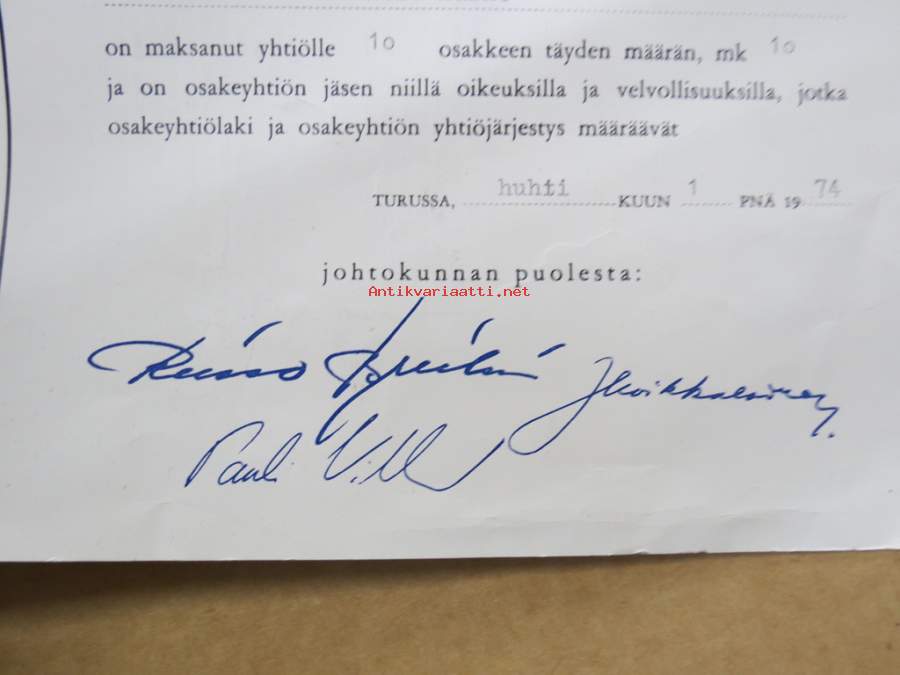 on maksanut yhtiölle 10 osakkeen täyden määrän, mk 10
ja on osakeyhtiön jäsen niillä oikeuksilla ja velvollisuuksilla, jotka
osakeyhtiölaki ja osakeyhtiön yhtiöjärjestys määräävät
TURUSSA, huhti KUUN 1 PNÄ 19 74
johtokunnan puolesta:
Antikvariaatti.net
Pauli